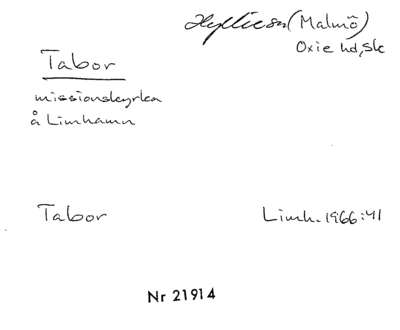 Hyllie sn (Malmö)
Oxie hd, Sk
Tabor
missionskyrka
å Limhamn
Tabor
Limh. 1966:41
Nr 21914